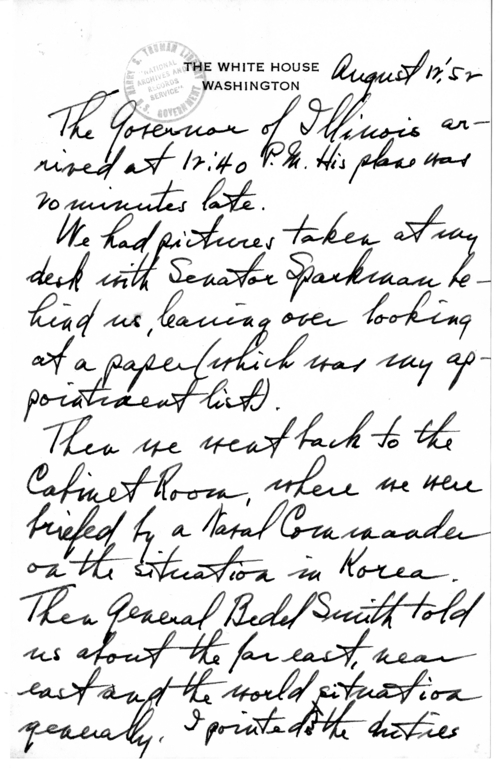 HARRY S. TRUMAN LIBRARY
"NATIONAL
ARCHIVES AND
RECORDS
SERVICE"
U.S. GOVERNMENT
THE WHITE HOUSE
WASHINGTON
August 12, '52
The Governor of Illinois ar-
rived at 12:40 P.M. His plane was
20 minutes late.
We had pictures taken at my
desk with Senator Sparkman be-
hind us, leaning over looking
at a paper (which was my ap-
pointment list).
Then we went back to the
Cabinet Room, where we were
briefed by a Naval Commander
on the situation in Korea.
Then General Bedel Smith told
us about the far east, near
east and the world situation
generally. I pointed the duties